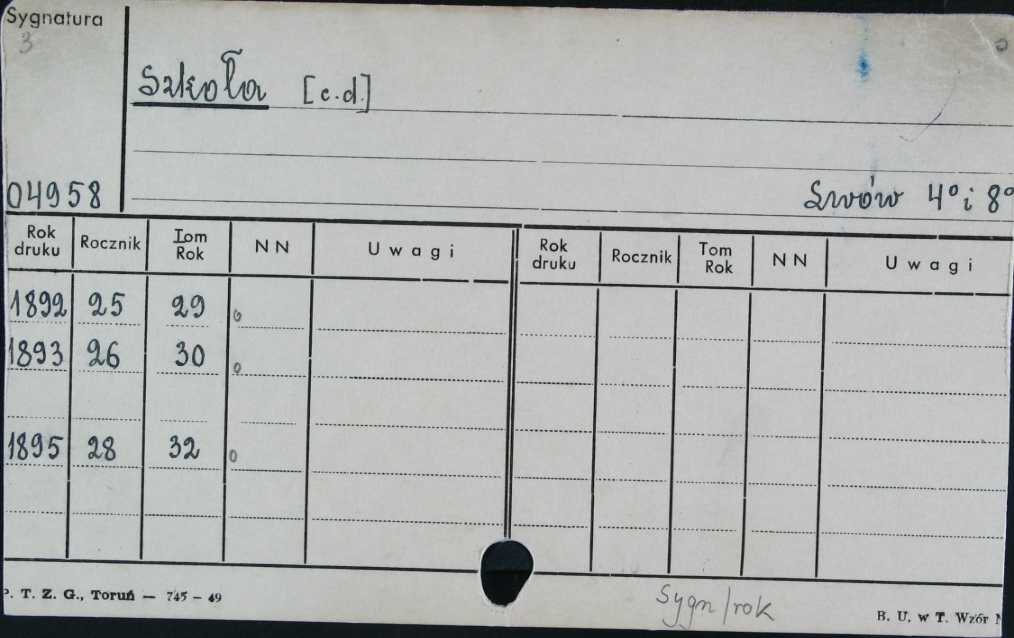 Sygnatura
3
Szkoła [c.d.]
04958
Lwów 4° i 8°
Rok druku Rocznik Tom Rok N N Uwagi Rok druku Rocznik Tom Rok N N Uwagi
1892 25 29 o
1893 26 30 o
1895 28 32 o
P. T. Z. G., Toruń — 745 – 49
Sygn/rok
B. U. w T. Wzór N